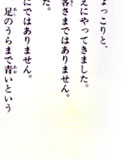 ょっこりと、
えにやってきました。
客さまではありません。
た。
にではありません。
足のうらまで青いという